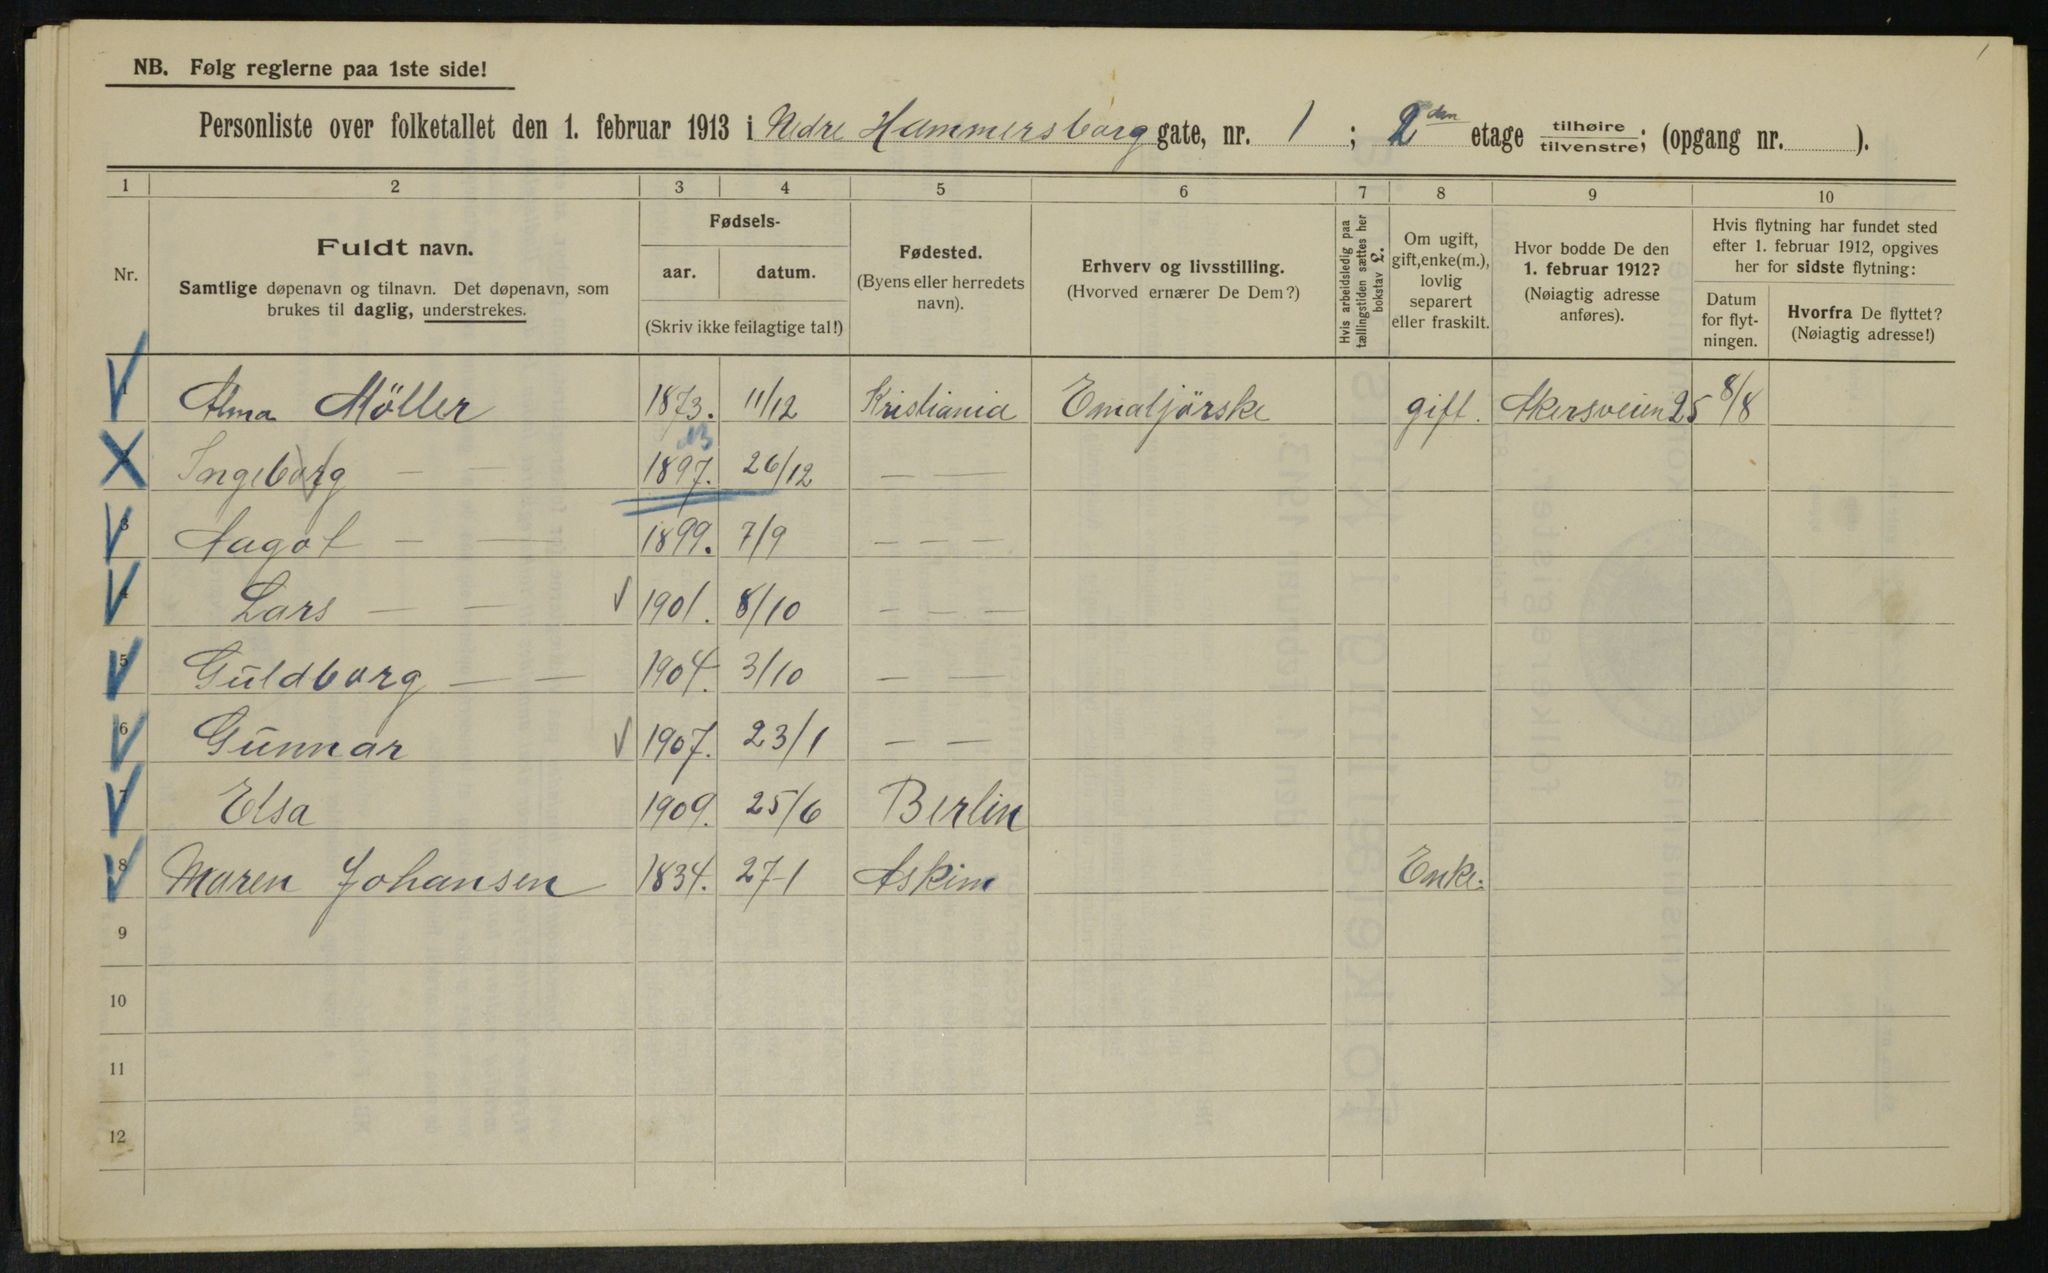 NB. Følg reglerne paa 1ste side!
Personliste over folketallet den 1. februar 1913 i Nedre Hammersborg gate, nr. 1 ; 2den etage tilhøire / tilvenstre; (opgang nr. ).
1 2 3 4 5 6 7 8 9 10
Nr.
Fuldt navn.
Samtlige døpenavn og tilnavn. Det døpenavn, som
brukes til daglig, understrekes.
Fødsels-
aar. datum.
(Skriv ikke feilagtige tal!)
Fødested.
(Byens eller herredets
navn).
Erhverv og livsstilling.
(Hvorved ernærer De Dem?)
Hvis arbeidsledig paa
tællingstiden sættes her
bokstav L.
Om ugift,
gift, enke(m.),
lovlig
separert
eller fraskilt.
Hvor bodde De den
1. februar 1912?
(Nøiagtig adresse
anføres).
Hvis flytning har fundet sted
efter 1. februar 1912, opgives
her for sidste flytning:
Datum
for flyt-
ningen.
Hvorfra De flyttet?
(Nøiagtig adresse!)
1 Alma Möller 1873. 11/12 Kristiania Emaljörske gift. Akersveien 25 8/8
Ingeborg — — 1897. 26/12 — —
3 Aagot — — 1899. 7/9 — — —
4 Lars — — 1901. 8/10 — — —
5 Guldborg — — 1904. 3/10 — —
6 Gunnar 1907. 23/1 — —
7 Elsa 1909. 25/6 Berlin
8 Maren Johansen 1834. 27-1 Askim Enke.
9
10
11
12